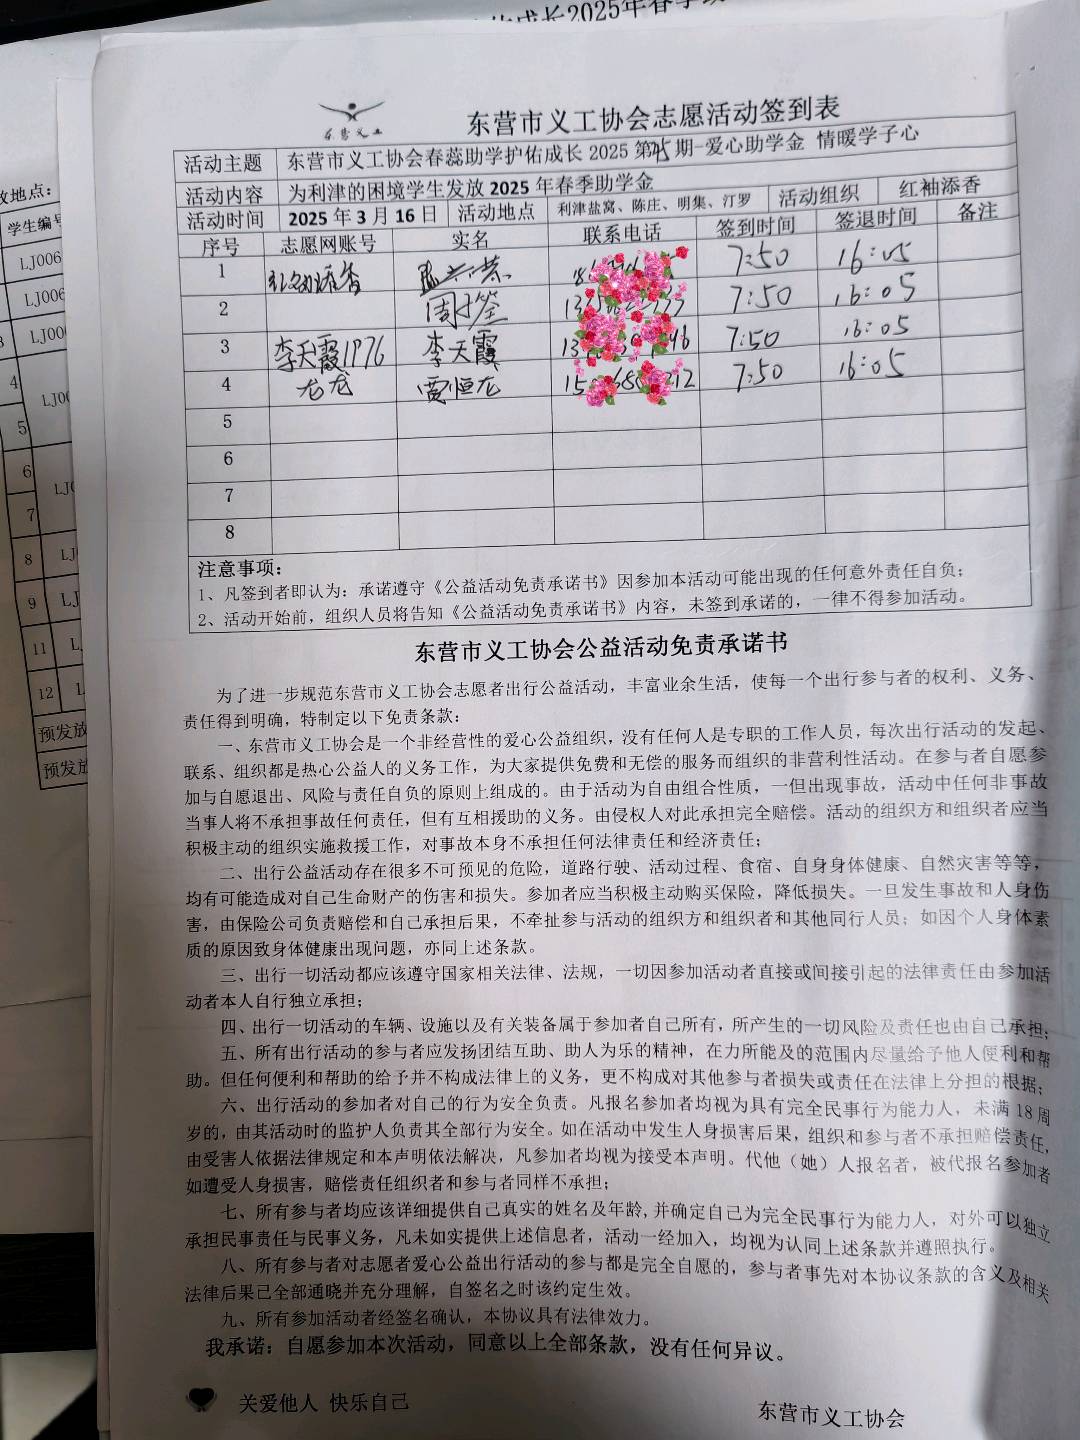 成长2025年春季
东营义工
东营市义工协会志愿活动签到表
活动主题 东营市义工协会春蕊助学护佑成长 2025 第 期-爱心助学金 情暖学子心
活动内容 为利津的困境学生发放 2025 年春季助学金
活动时间 2025 年 3 月 16 日 活动地点 利津盐窝、陈庄、明集、汀罗 活动组织 红袖添香
序号 志愿网账号 实名 联系电话 签到时间 签退时间 备注
1 红袖添香 7:50 16:05
2 周 7:50 16:05
3 李天霞1976 李天霞 7:50 16:05
4 龙龙 贾恒龙 7:50 16:05
5
6
7
8
注意事项:
1、凡签到者即认为:承诺遵守《公益活动免责承诺书》因参加本活动可能出现的任何意外责任自负;
2、活动开始前,组织人员将告知《公益活动免责承诺书》内容,未签到承诺的,一律不得参加活动。
东营市义工协会公益活动免责承诺书
为了进一步规范东营市义工协会志愿者出行公益活动,丰富业余生活,使每一个出行参与者的权利、义务、
责任得到明确,特制定以下免责条款:
一、东营市义工协会是一个非经营性的爱心公益组织,没有任何人是专职的工作人员,每次出行活动的发起、
联系、组织都是热心公益人的义务工作,为大家提供免费和无偿的服务而组织的非营利性活动。在参与者自愿参
加与自愿退出、风险与责任自负的原则上组成的。由于活动为自由组合性质,一但出现事故,活动中任何非事故
当事人将不承担事故任何责任,但有互相援助的义务。由侵权人对此承担完全赔偿。活动的组织方和组织者应当
积极主动的组织实施救援工作,对事故本身不承担任何法律责任和经济责任;
二、出行公益活动存在很多不可预见的危险,道路行驶、活动过程、食宿、自身身体健康、自然灾害等等,
均有可能造成对自己生命财产的伤害和损失。参加者应当积极主动购买保险,降低损失。一旦发生事故和人身伤
害,由保险公司负责赔偿和自己承担后果,不牵扯参与活动的组织方和组织者和其他同行人员;如因个人身体素
质的原因致身体健康出现问题,亦同上述条款。
三、出行一切活动都应该遵守国家相关法律、法规,一切因参加活动者直接或间接引起的法律责任由参加活
动者本人自行独立承担;
四、出行一切活动的车辆、设施以及有关装备属于参加者自己所有,所产生的一切风险及责任也由自己承担;
五、所有出行活动的参与者应发扬团结互助、助人为乐的精神,在力所能及的范围内尽量给予他人便利和帮
助。但任何便利和帮助的给予并不构成法律上的义务,更不构成对其他参与者损失或责任在法律上分担的根据;
六、出行活动的参加者对自己的行为安全负责。凡报名参加者均视为具有完全民事行为能力人,未满 18 周
岁的,由其活动时的监护人负责其全部行为安全。如在活动中发生人身损害后果,组织和参与者不承担赔偿责任,
由受害人依据法律规定和本声明依法解决,凡参加者均视为接受本声明。代他(她)人报名者,被代报名参加者
如遭受人身损害,赔偿责任组织者和参与者同样不承担;
七、所有参与者均应该详细提供自己真实的姓名及年龄,并确定自己为完全民事行为能力人,对外可以独立
承担民事责任与民事义务,凡未如实提供上述信息者,活动一经加入,均视为认同上述条款并遵照执行。
八、所有参与者对志愿者爱心公益出行活动的参与都是完全自愿的,参与者事先对本协议条款的含义及相关
法律后果已全部通晓并充分理解,自签名之时该约定生效。
九、所有参加活动者经签名确认,本协议具有法律效力。
我承诺:自愿参加本次活动,同意以上全部条款,没有任何异议。
关爱他人 快乐自己
东营市义工协会
放地点:
学生编号
LJ006
LJ006
LJ00
4
LJ00
5
6
LJ0
7
8 LJ
9 LJ
11 L
12 L
预发放
预发放